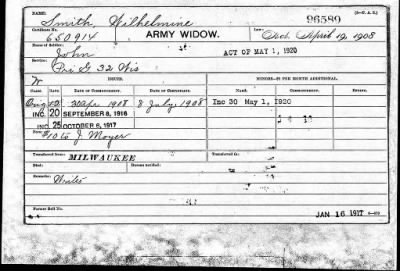 NAME: (3—U. A. S.)
Smith, Wilhelmine 96589
Certificate No.:
650914 ARMY WIDOW. April 19, 1908
Name of Soldier:
John ACT OF MAY 1, 1920
Service:
Pri G 32 Wis
W ISSUES. MINORS—$2 PER MONTH ADDITIONAL.
CLASS. RATE. DATE OF COMMENCEMENT. DATE OF CERTIFICATE. COMMENCEMENT. RATE.
Orig 12 Apr 1908 8 July, 1908 Inc 30 May 1, 1920
INC. 20 SEPTEMBER 8, 1916
INC. 25 OCTOBER 6, 1917
$10 to J. Moyer
Transferred from: MILWAUKEE Transferred to:
Died: Bureau notified:
Remarks:
Former Roll No. JAN 16 1917